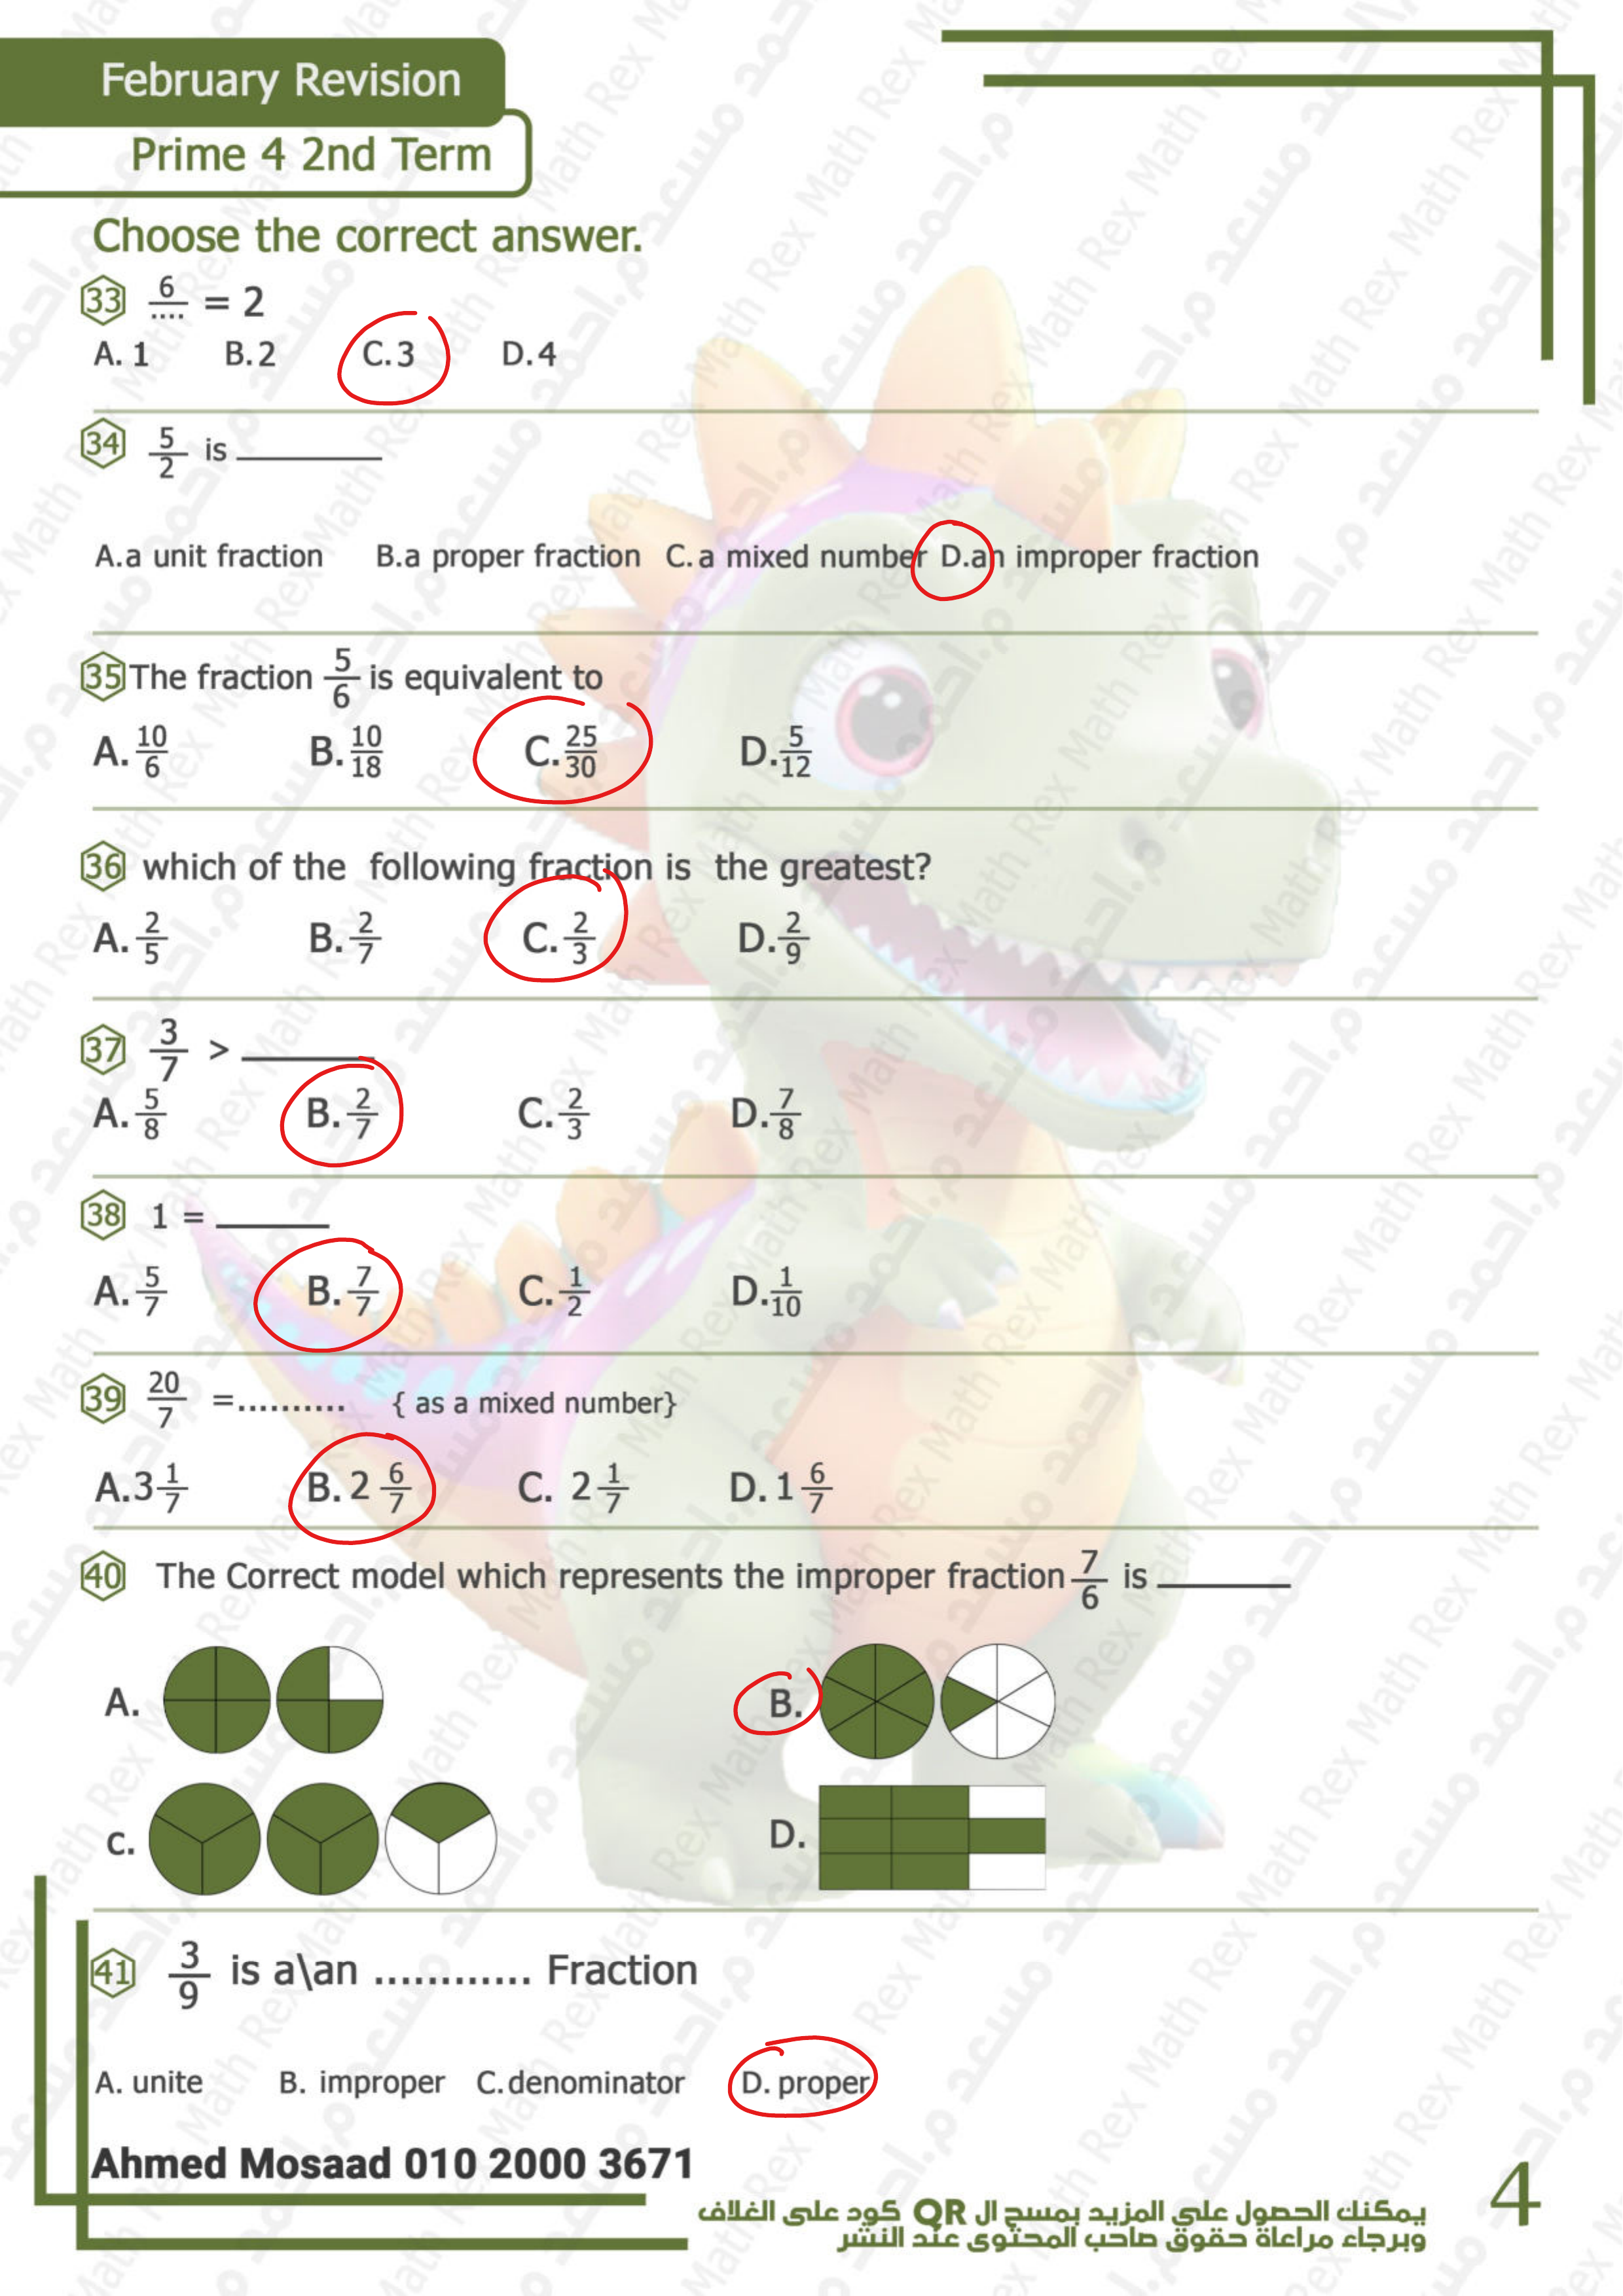 February Revision
Prime 4 2nd Term
Choose the correct answer.
33 6/.... = 2
A. 1 B. 2 C. 3 D. 4
34 5/2 is ________
A.a unit fraction B.a proper fraction C. a mixed number D.an improper fraction
35 The fraction 5/6 is equivalent to
A. 10/6 B. 10/18 C. 25/30 D. 5/12
36 which of the following fraction is the greatest?
A. 2/5 B. 2/7 C. 2/3 D. 2/9
37 3/7 > ________
A. 5/8 B. 2/7 C. 2/3 D. 7/8
38 1 = ________
A. 5/7 B. 7/7 C. 1/2 D. 1/10
39 20/7 =.......... { as a mixed number}
A. 3 1/7 B. 2 6/7 C. 2 1/7 D. 1 6/7
40 The Correct model which represents the improper fraction 7/6 is ________
A. B.
C. D.
41 3/9 is a\an ............ Fraction
A. unite B. improper C. denominator D. proper
Ahmed Mosaad 010 2000 3671
يمكنك الحصول على المزيد بمسح ال QR كود على الغلاف
وبرجاء مراعاة حقوق صاحب المحتوى عند النشر
4
م.احمد مسعد Math Rex